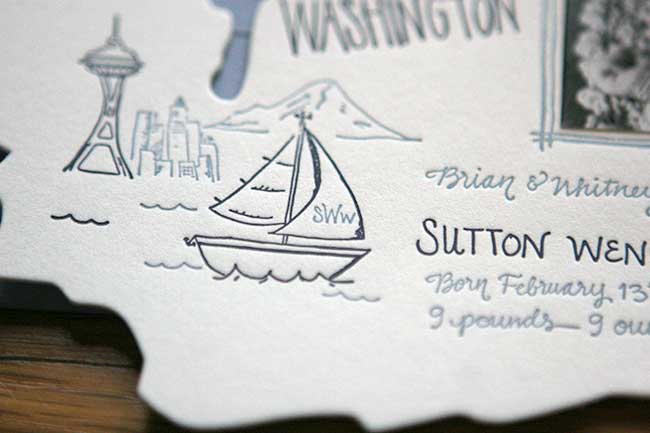 WASHINGTON
SWW
Brian & Whitney
SUTTON WEN
Born February 13
9 pounds— 9 ou